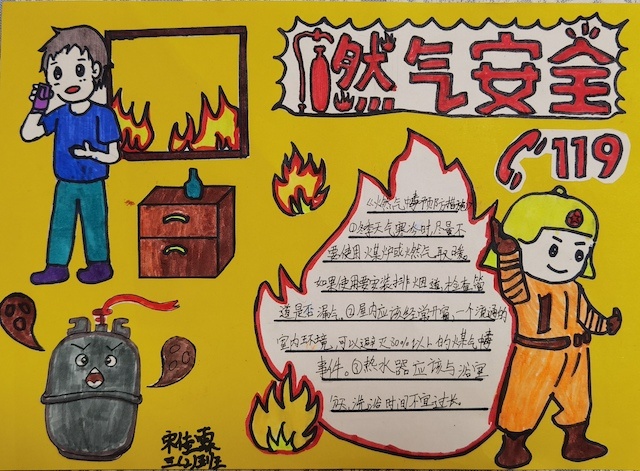 燃气安全
119
《燃气中毒预防措施》
①冬天气寒冷时,尽量不
要使用煤炉或燃气取暖。
如果使用要安装排烟道,检查管
道是否漏气。②屋内应该经常开窗,一个流通的
室内环境,可以避免80%以上的煤气中毒
事件。③热水器应该与浴室
分,洗浴时间不宜过长。
宋佳
三(2)班